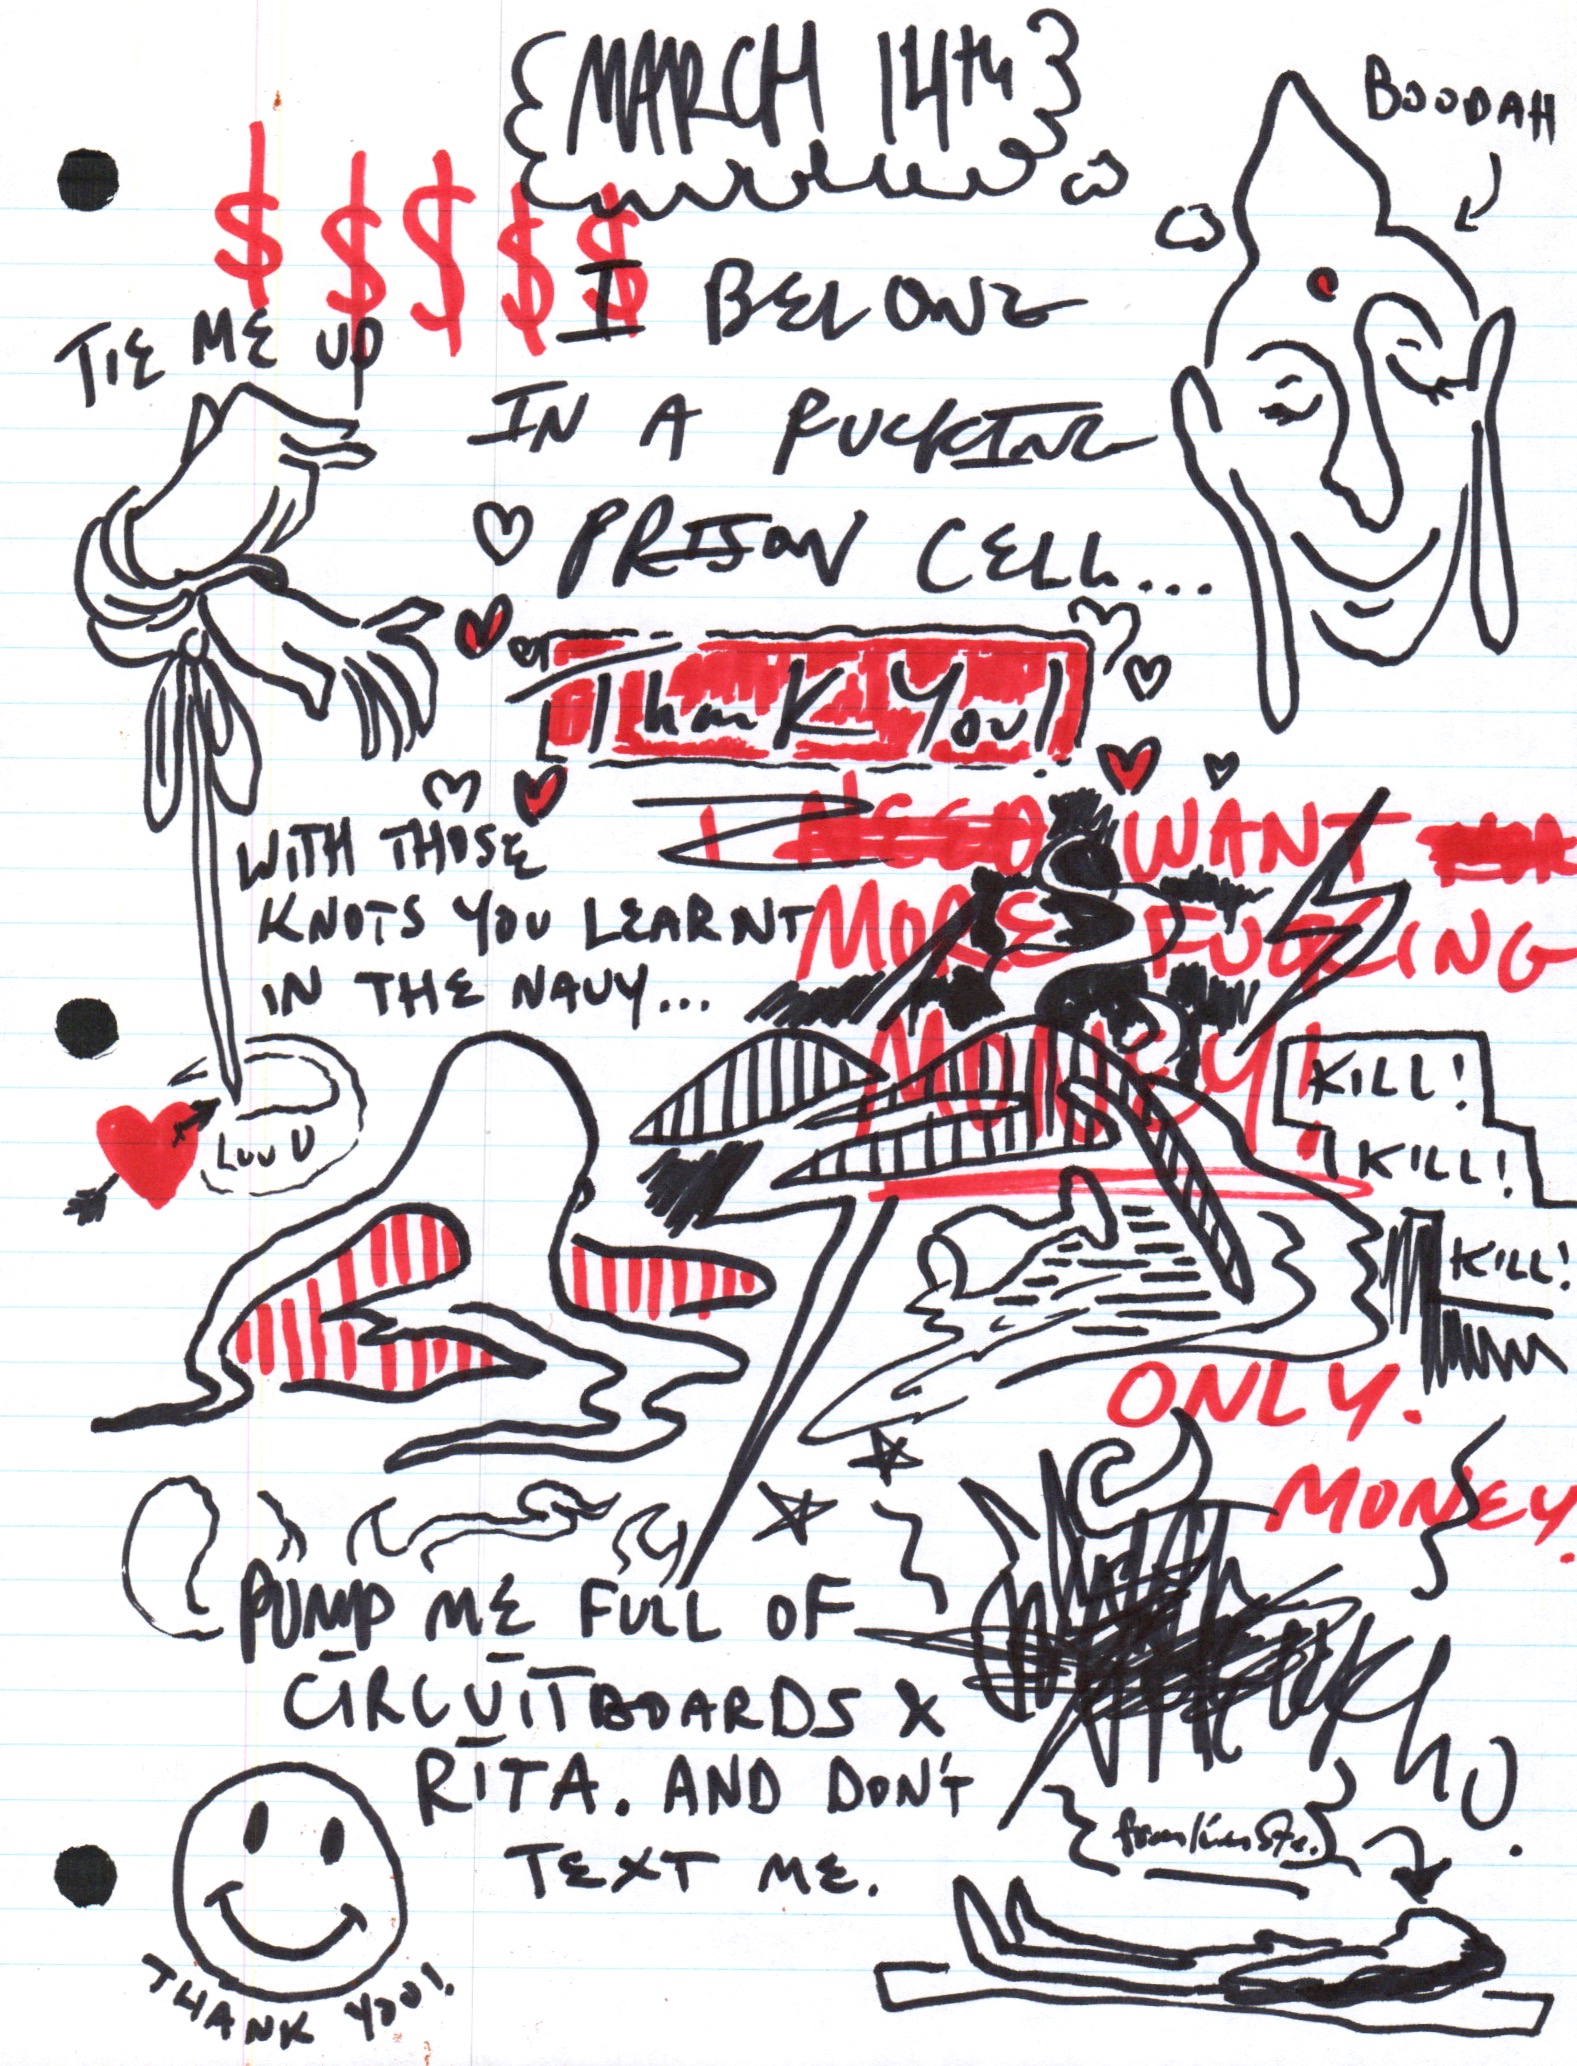 {MARCH 14th}
BOODAH
$ $ $ $ $
TIE ME UP
I BELONG
IN A FUCKING
PRISON CELL...
Thank You!
WITH THOSE
KNOTS YOU LEARNT
IN THE NAVY...
I NEED WANT
MORE FUCKING
MONEY!
KILL!
KILL!
KILL!
LUV U
ONLY.
MONEY.
PUMP ME FULL OF
CIRCUITBOARDS &
RITA. AND DON'T
TEXT ME.
THANK YOU!